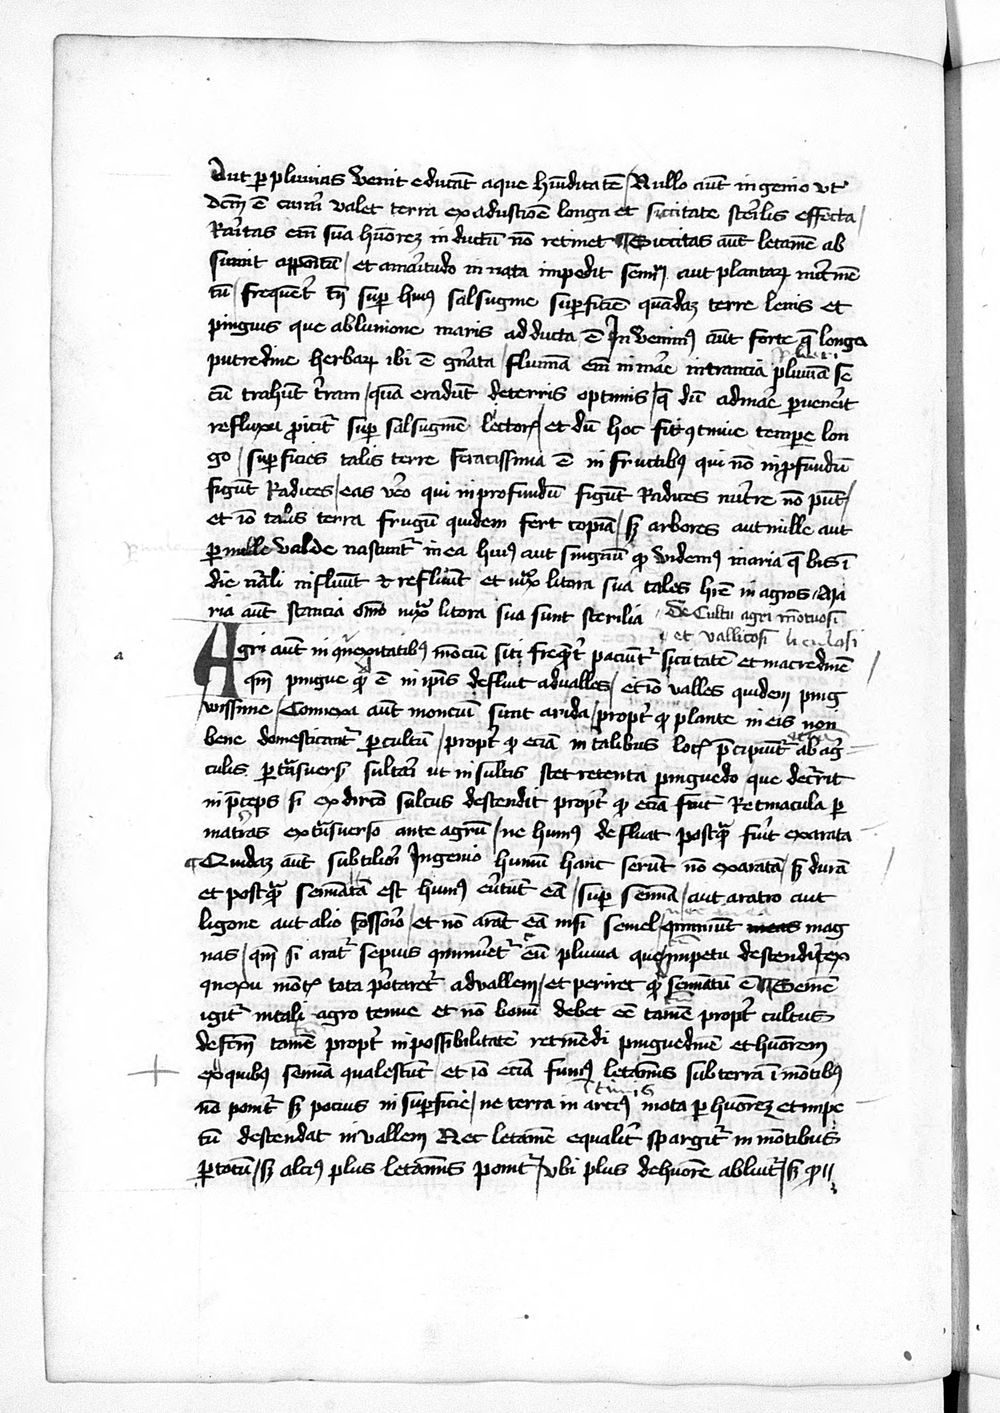 Aut p pluuias venit educat aque humiditatē Nullo aut ingenio vt
dcm ē curari valet terra ex adustione longa et siccitate sterilis effecta
Raritas em sua humorez inductu nō retinet Siccitas aut letamē ab
sumit appositū et amaritudo innata impedit seminū aut plantarū nutrimē
tū frequent tn sup huius salsugine supficiē quādaz terre lenis et
pinguis que ablunione maris adducta ē Invenimus aut forte que longa
putredine herbarū ibi ē gnata flumina em in mare intrancia pluuia se
cū trahunt terram quā eradunt de terris optimis que dū ad mare puenerit
refluxu proicit sup salsugine et dū hoc fit continue tempore lon
go supficies talis terre feracissima ē in fructibus qui nō in pfundū
figunt Radices eas vero qui in profundū figunt Radices nutrire nō possunt
et io talis terra frugum quidem fert copiā sz arbores aut nulle aut
pauce valde nascuntur in ea huius aut signum quod videmus maria que bis ī
die nāli influunt et refluunt et iuxta litora sua tales habent in agros Ma
ria aut stancia omnino iuxta litora sua sunt sterilia De Cultu agri mōtuosi
et vallicosi
Agri aut in conuexitatibus moncium siti frequenter paciuntur siccitatē et macredinē
qm pingue quod ē in ipsis defluit ad valles et io valles quidem ping
wissime Connexa aut moncium sunt arida propter quod plante in eis non
bene domesticantur p cultū propter quod eciā in talibus locis pcipiuntur ab agri
culis p trāsuersū sulcari ut in sulcis stet retenta pinguedo que decurrit
in pceps si ex directo sulcus descendit propter quod eciā fiunt Retinacula p
matras ex trāsuerso ante agrum ne humus defluat postquā fuerit exarata
Quidaz aut subtiliori Ingenio humū hanc serunt nō exaratā sz durā
et postquā seminata est humus euertunt eā sup semina aut aratro aut
ligone aut alio fossorio et nō arant eā nisi semel mag
nas qm si aratur sepius cominueretur eū pluuia que impetu descendit ex
conuexu montis tota portaretur ad vallem et periret quod seminatū ē Semen
igitur in tali agro tenue et nō bonū debet esse tamē propter cultus
defectum tamē propter inpossibilitatē retinendi pinguedinē et humorem
ex quibus semina qualescunt et io eciā fimus letaminis sub terra ī mōtibus
nō ponitur sz pocius in supficie ne terra in mota p humorez et impe
tū descendat in vallem Nec letamē equaliter spargitur in mōtibus
p totū sz alcius plus letaminis ponitur vbi plus de humore abluitur sz quod